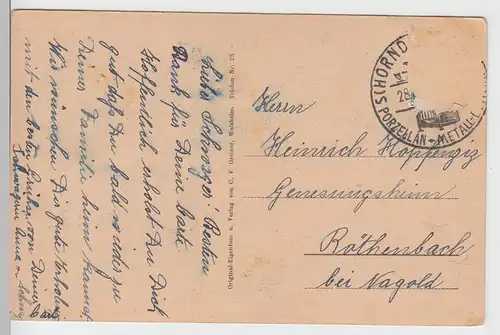 Lieber Schwager! Besten
Dank für Deine Karte
Hoffentlich erholst Du Dich
gut daß Du bald wieder zu
Deiner Familie heim kannst
Wir wünschen Dir gute Erholung
mit den besten Grüßen von Deiner
Schwägerin Anna
Original-Eigentum u. Verlag von C. F. Telefon Nr. 28
SCHORND
28
PORZELLAN - METALL-
Herrn
Heinrich Hoppenzig
Genesungsheim
Röthenbach
bei Nagold